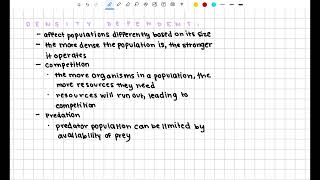 DENSITY DEPENDENT:
- affect populations differently based on its size
- the more dense the population is, the stronger
it operates
- competition
• the more organisms in a population, the
more resources they need
• resources will run out, leading to
competition
- Predation
• predator population can be limited by
availability of prey